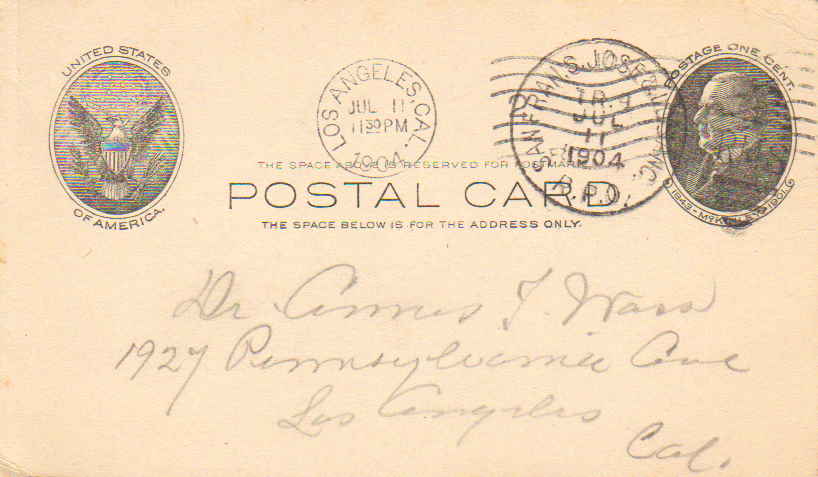 UNITED STATES
OF AMERICA.
LOS ANGELES, CAL.
JUL 11
11 30 PM
1904
SAN FRAN, S. JOSE
TR. 4
JUL
11
1904
R.P.O.
POSTAGE ONE CENT.
1843-McKINLEY-1901
THE SPACE ABOVE IS RESERVED FOR POSTMARK.
POSTAL CARD
THE SPACE BELOW IS FOR THE ADDRESS ONLY.
Dr. Annus T. Wass
1927 Pennsylvania Ave
Los Angeles
Cal.